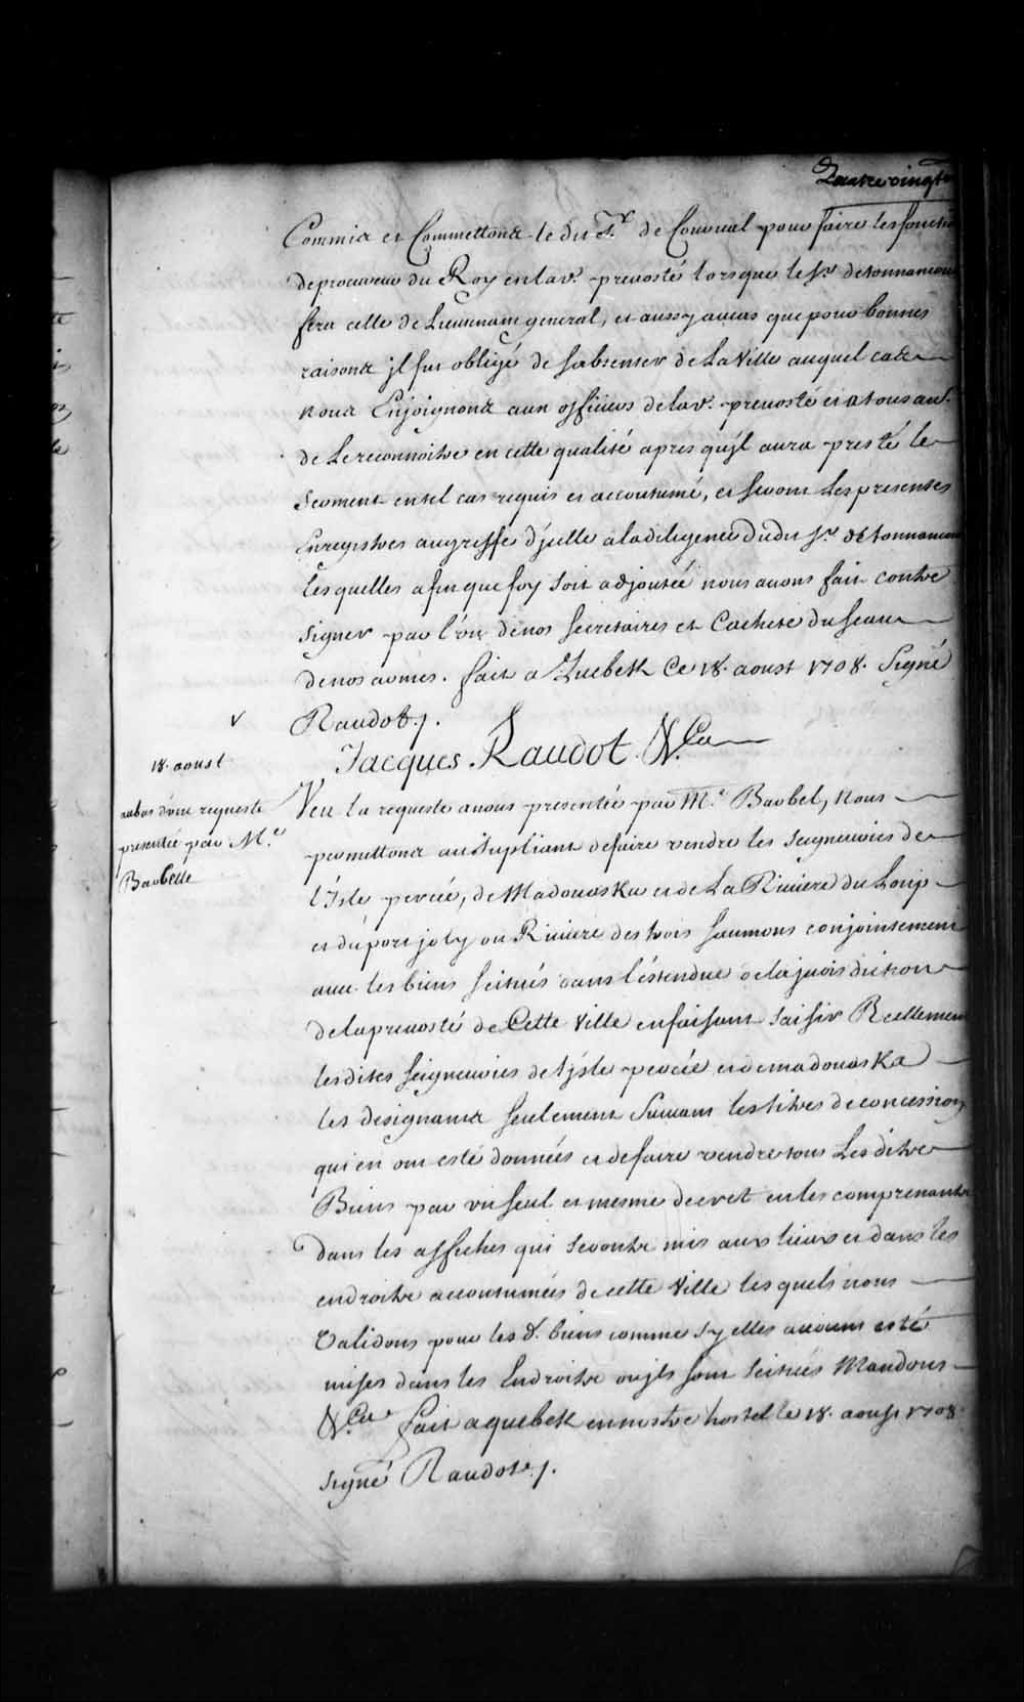 Quatre vingt
Commis et Commettons le dit Sr. de Couual pour faire les fonctio
de procureur du Roy en lad. preuosté lorsque le Sr. detonnancou
fera celle de Lieutenant general, et aussy au cas que pour bonnes
raisons il fut obligé de sabsenter de La Ville auquel cas
nous Enjoignons aux officiers de lad. preuosté et a tous aus.
de Le reconnoitre en cette qualité apres qu'jl aura presté le
serment en tel cas requis et accoutumé, et seront Les presentes
Enregistres au greffe d'jcelle a la diligence dudit Sr. detonnancou
lesquelles afin que foy soit adjoutée nous auons fait contre
signer par l'un de nos secretaires et Cacheté du sceau
de nos armes. fait a Quebek Ce 18. aoust 1708. Signé
Raudot ./.
Jacques. Raudot. &.Ca
18. aoust
au bas d'une requeste
presentée par Me.
Barbelle
Veu la requeste a nous presentée par Me. Barbel, Nous
permettons au supliant de faire vendre les seigneuries de
l'Isle percée, de Madouaska et de La Riuiere du Loup
et du port joly ou Riuiere des trois saumons conjointement
auec les biens scitués dans l'éstendue de la jurisdiction
de la preuosté de Cette Ville en faisant saisir Reellement
les dites seigneuries de l'jsle percée et de madouaska
les designants seulement suiuant les titres de concession
qui en ont esté données et de faire vendre tous Les dits
Biens par un seul et mesme decret en les comprenants
dans les affiches qui seront mis aux lieux et dans les
endroits accoutumés de cette Ville les quels nous
Validons pour les d. biens comme sy elles auoient esté
mises dans les Endroits ou jls sont scitués Mandons
&.Ca fait a quebek en nostre hostel le 18. aoust 1708.
signé Raudot ./.